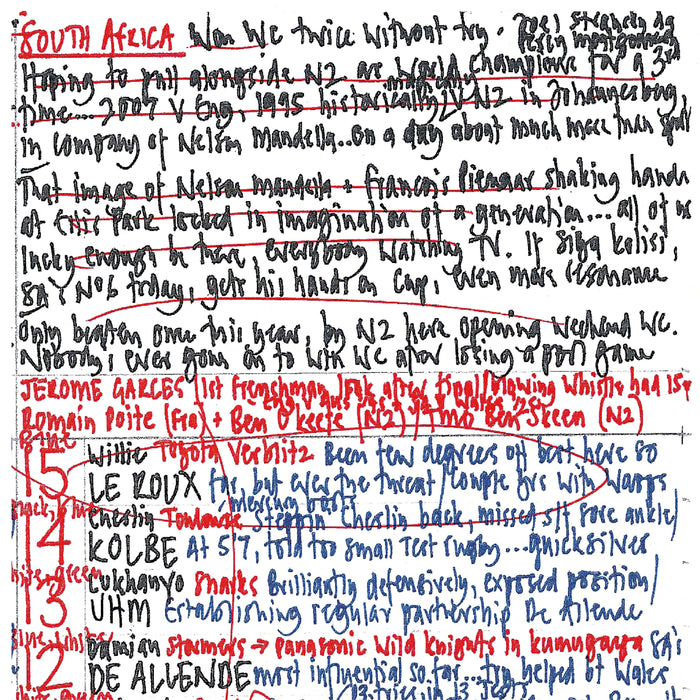 SOUTH AFRICA Won WC twice without try. Joel Stransky
Percy Montgomery
Hoping to pull alongside NZ as World Champions for a 3rd
time... 2007 v Eng, 1995 historically v NZ in Johannesburg
in company of Nelson Mandella.. on a day about much more than sport
That image of Nelson Mandella + Francois Pienaar shaking hands
at Ellis Park locked in imagination of a generation... all of us
lucky enough be there, everybody watching TV. If Siya Kolisi,
SA's No6 today, gets his hands on Cup, even more resonance
Only beaten once this year, by NZ here opening weekend WC.
Nobody's ever gone on to win WC after losing a pool game
JEROME GARCES (1st Frenchman / Fnk after final / blowing whistle had 1st
Romain Poite (Fra) + Ben O'Keefe (NZ) / TMO Ben Skeen (NZ)
15 Willie Toyota Verblitz Been few degrees off best here so
LE ROUX far, but ever the threat / couple yrs with Wasps
14 Cheslin Toulouse Steppin Cheslin back, missed s/f, sore ankle/
KOLBE At 5'7, told too small Test rugby...quicksilver
13 Lukhanyo Sharks Brilliantly defensively, exposed position/
UHM Establishing regular partnership De Allende
12 Damian Stormers → Panasonic Wild Knights in Kumugaya SA's
DE ALLENDE most influential so far... try helped bt Wales